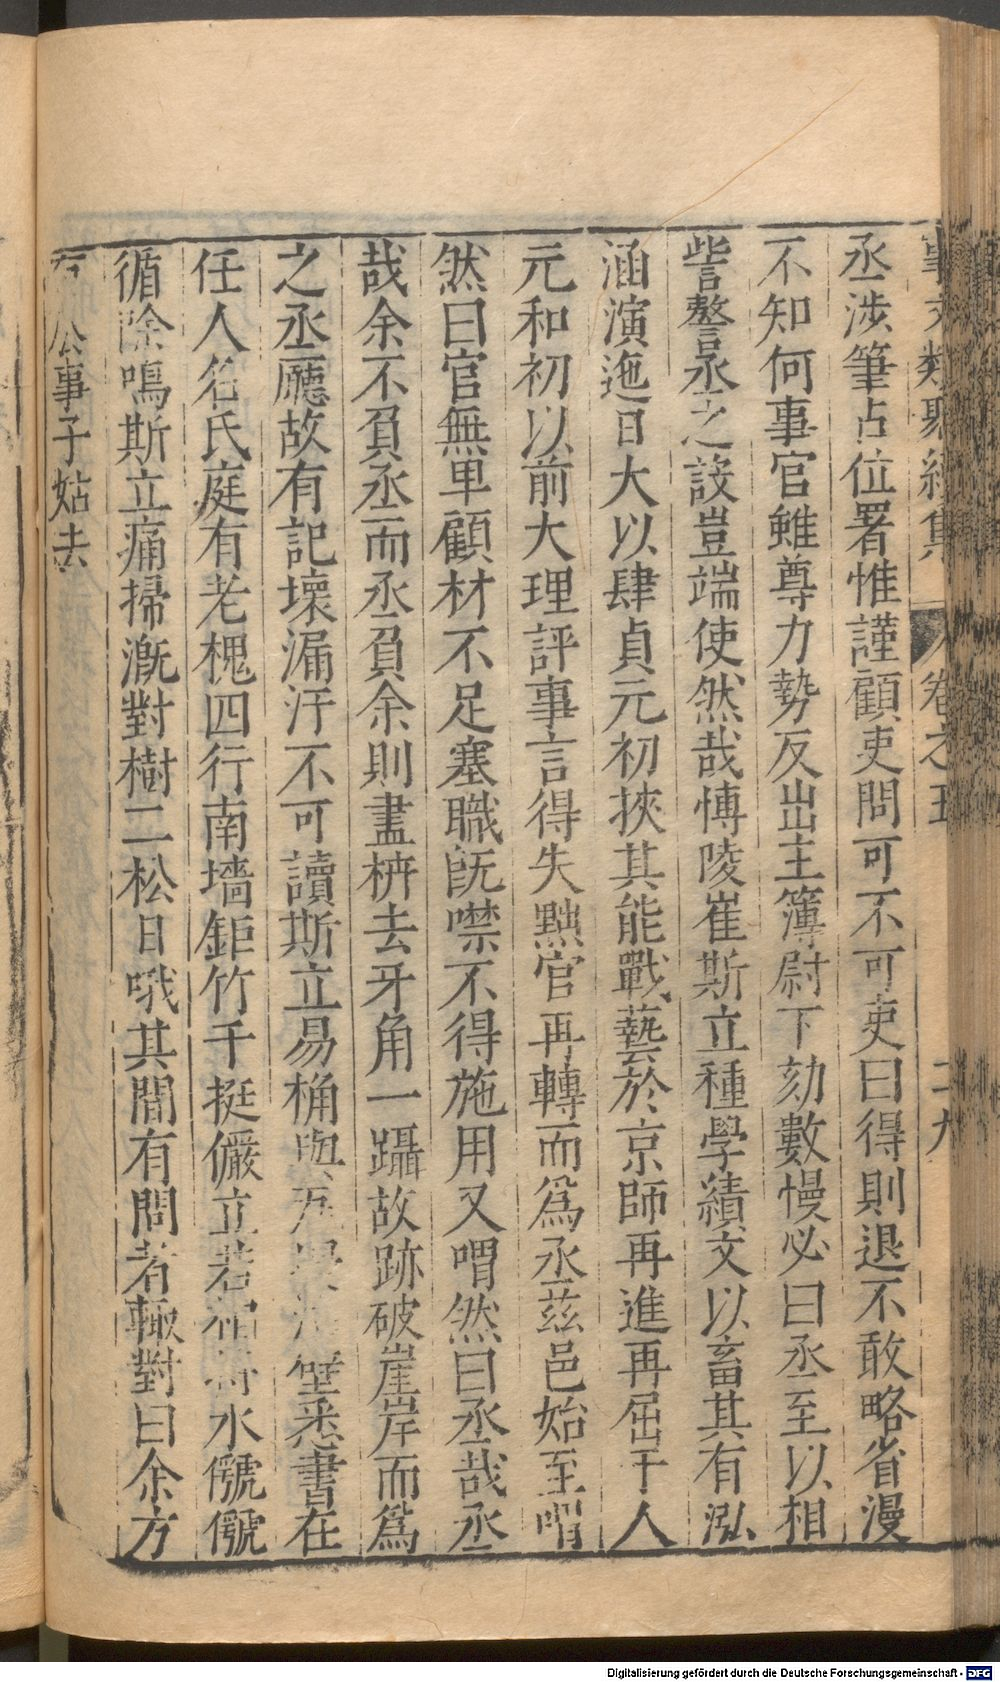 事文類聚續集 卷之五 二九
丞涉筆占位署惟謹顧吏問可不可吏曰得則退不敢略省漫
不知何事官雖尊力勢反出主簿尉下劾數慢必曰丞至以相
訾謷丞之設豈端使然哉博陵崔斯立種學績文以畜其有泓
涵演迤日大以肆貞元初挾其能戰藝於京師再進再屈于人
元和初以前大理評事言得失黜官再轉而爲丞茲邑始至喟
然曰官無卑顧材不足塞職旣噤不得施用又喟然曰丞哉丞
哉余不負丞而丞負余則盡枿去牙角一躡故跡破崖岸而爲
之丞廳故有記壞漏汙不可讀斯立易桷與瓦墁治壁悉書在
任人名氏庭有老槐四行南墻鉅竹千挺儼立若相持水㶁㶁
循除鳴斯立痛掃漑對樹二松日哦其間有問者輒對曰余方
有公事子姑去
Digitalisierung gefördert durch die Deutsche Forschungsgemeinschaft - DFG